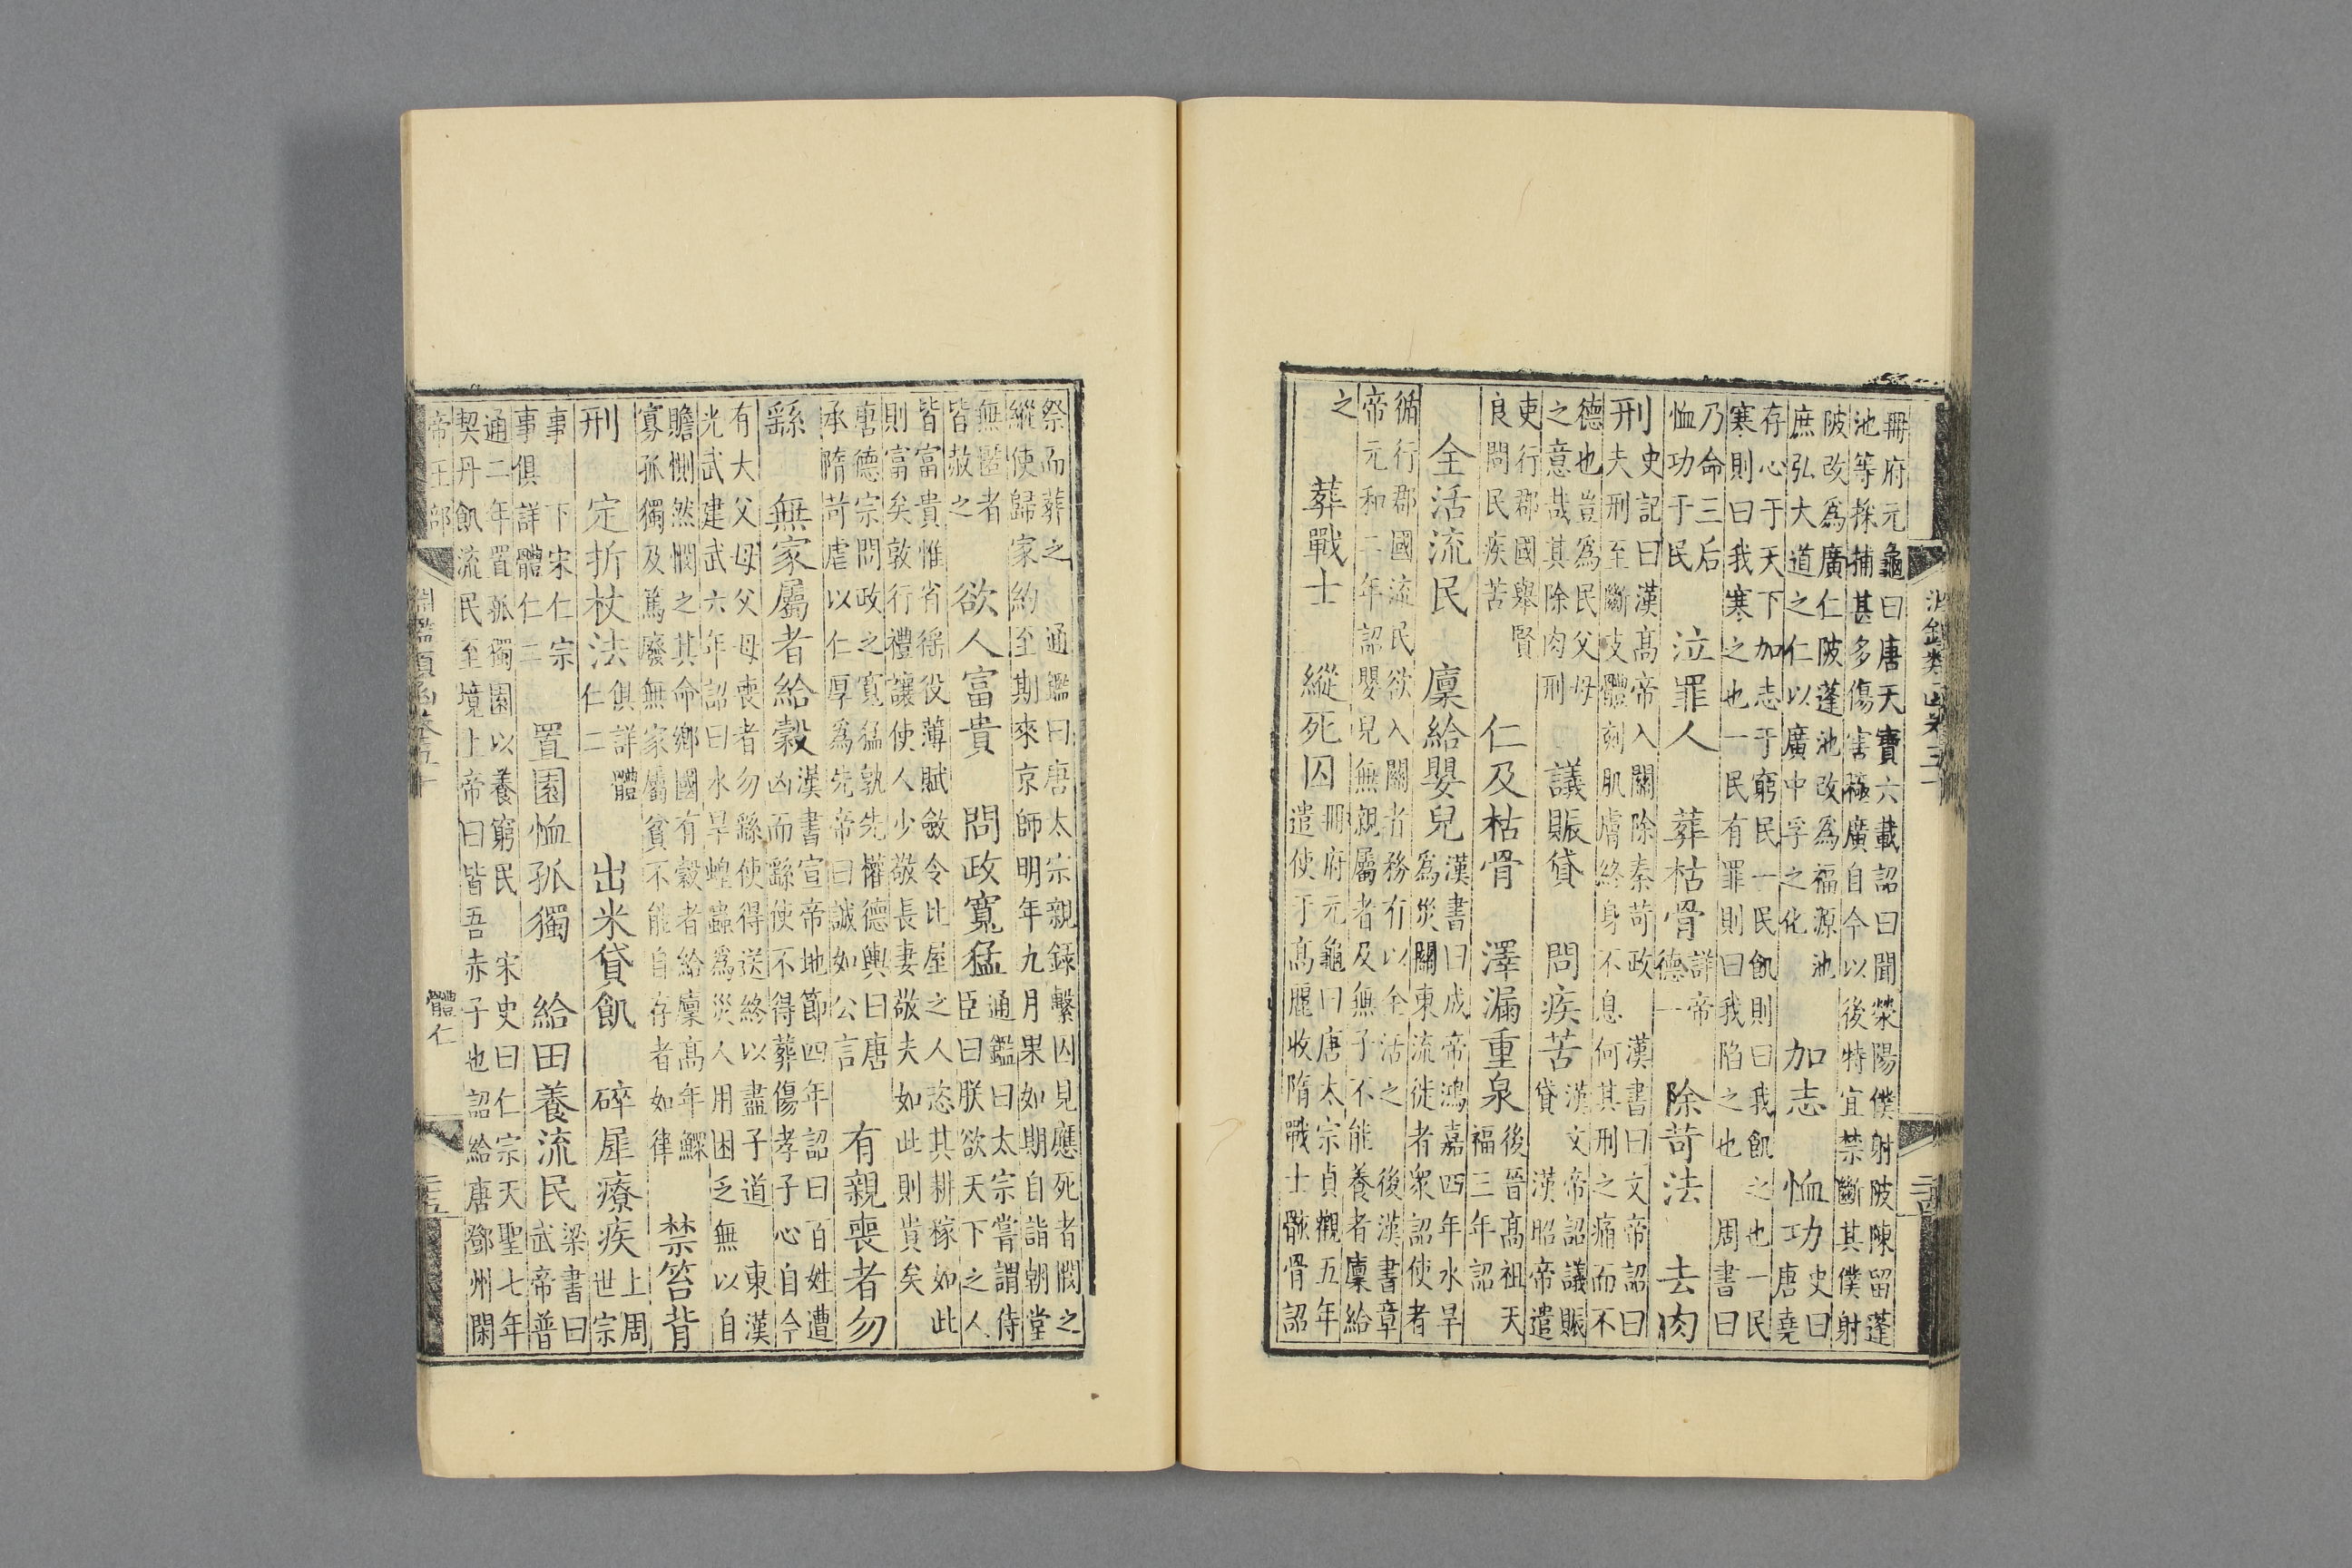 冊府元龜曰唐天寶六載詔曰聞滎陽僕射陂陳留蓬
池等採捕甚多傷害極廣自今以後特宜禁斷其僕射
陂改爲廣仁陂蓬池改爲福源池
庶弘大道之仁以廣中孚之化
加志 恤功
史曰
唐堯
存心于天下加志于窮民一民飢則曰我飢之也一民
寒則曰我寒之也一民有罪則曰我陷之也 周書曰
乃命三后
恤功于民
泣罪人 葬枯骨
詳帝
德一
除苛法 去肉
刑
史記曰漢高帝入關除秦苛政 漢書曰文帝詔曰
夫刑至斷支體刻肌膚終身不息何其刑之痛而不
德也豈爲民父母
之意哉其除肉刑
議賑貸 問疾苦
漢文帝詔議賑
貸 漢昭帝遣
吏行郡國舉賢
良問民疾苦
仁及枯骨 澤漏重泉
後晉高祖天
福三年詔
全活流民 廩給嬰兒
漢書曰成帝鴻嘉四年水旱
爲災關東流徒者衆詔使者
循行郡國流民欲入關者務有以全活之 後漢書章
帝元和二年詔嬰兒無親屬者及無子不能養者廩給
之
葬戰士 縱死囚
冊府元龜曰唐太宗貞觀五年
遣使于高麗收隋戰士骸骨詔
祭而葬之 通鑑曰唐太宗親錄繫囚見應死者憫之
縱使歸家約至期來京師明年九月果如期自詣朝堂
無匿者
皆赦之
欲人富貴 問政寬猛
通鑑曰太宗嘗謂侍
臣曰朕欲天下之人
皆富貴惟省徭役薄賦斂令比屋之人恣其耕稼如此
則富矣敦行禮讓使人少敬長妻敬夫如此則貴矣
唐德宗問政之寬猛孰先權德輿曰唐
承隋苛虐以仁厚爲先帝曰誠如公言
有親喪者勿
繇 無家屬者給穀
漢書宣帝地節四年詔曰百姓遭
凶而繇使不得葬傷孝子心自今
有大父母父母喪者勿繇使得送終以盡子道 東漢
光武建武六年詔曰水旱蝗蟲爲災人用困乏無以自
贍惻然憫之其命鄉國有穀者給廩高年鰥
寡孤獨及篤廢無家屬貧不能自存者如律
禁笞背
刑 定折杖法
俱詳體
仁二
出米貸飢 碎犀療疾
上周
世宗
事 下宋仁宗
事俱詳體仁二
置園恤孤獨 給田養流民
梁書曰
武帝普
通二年置孤獨園以養窮民 宋史曰仁宗天聖七年
契丹飢流民至境上帝曰皆吾赤子也詔給唐鄧州閑
帝王部
體仁